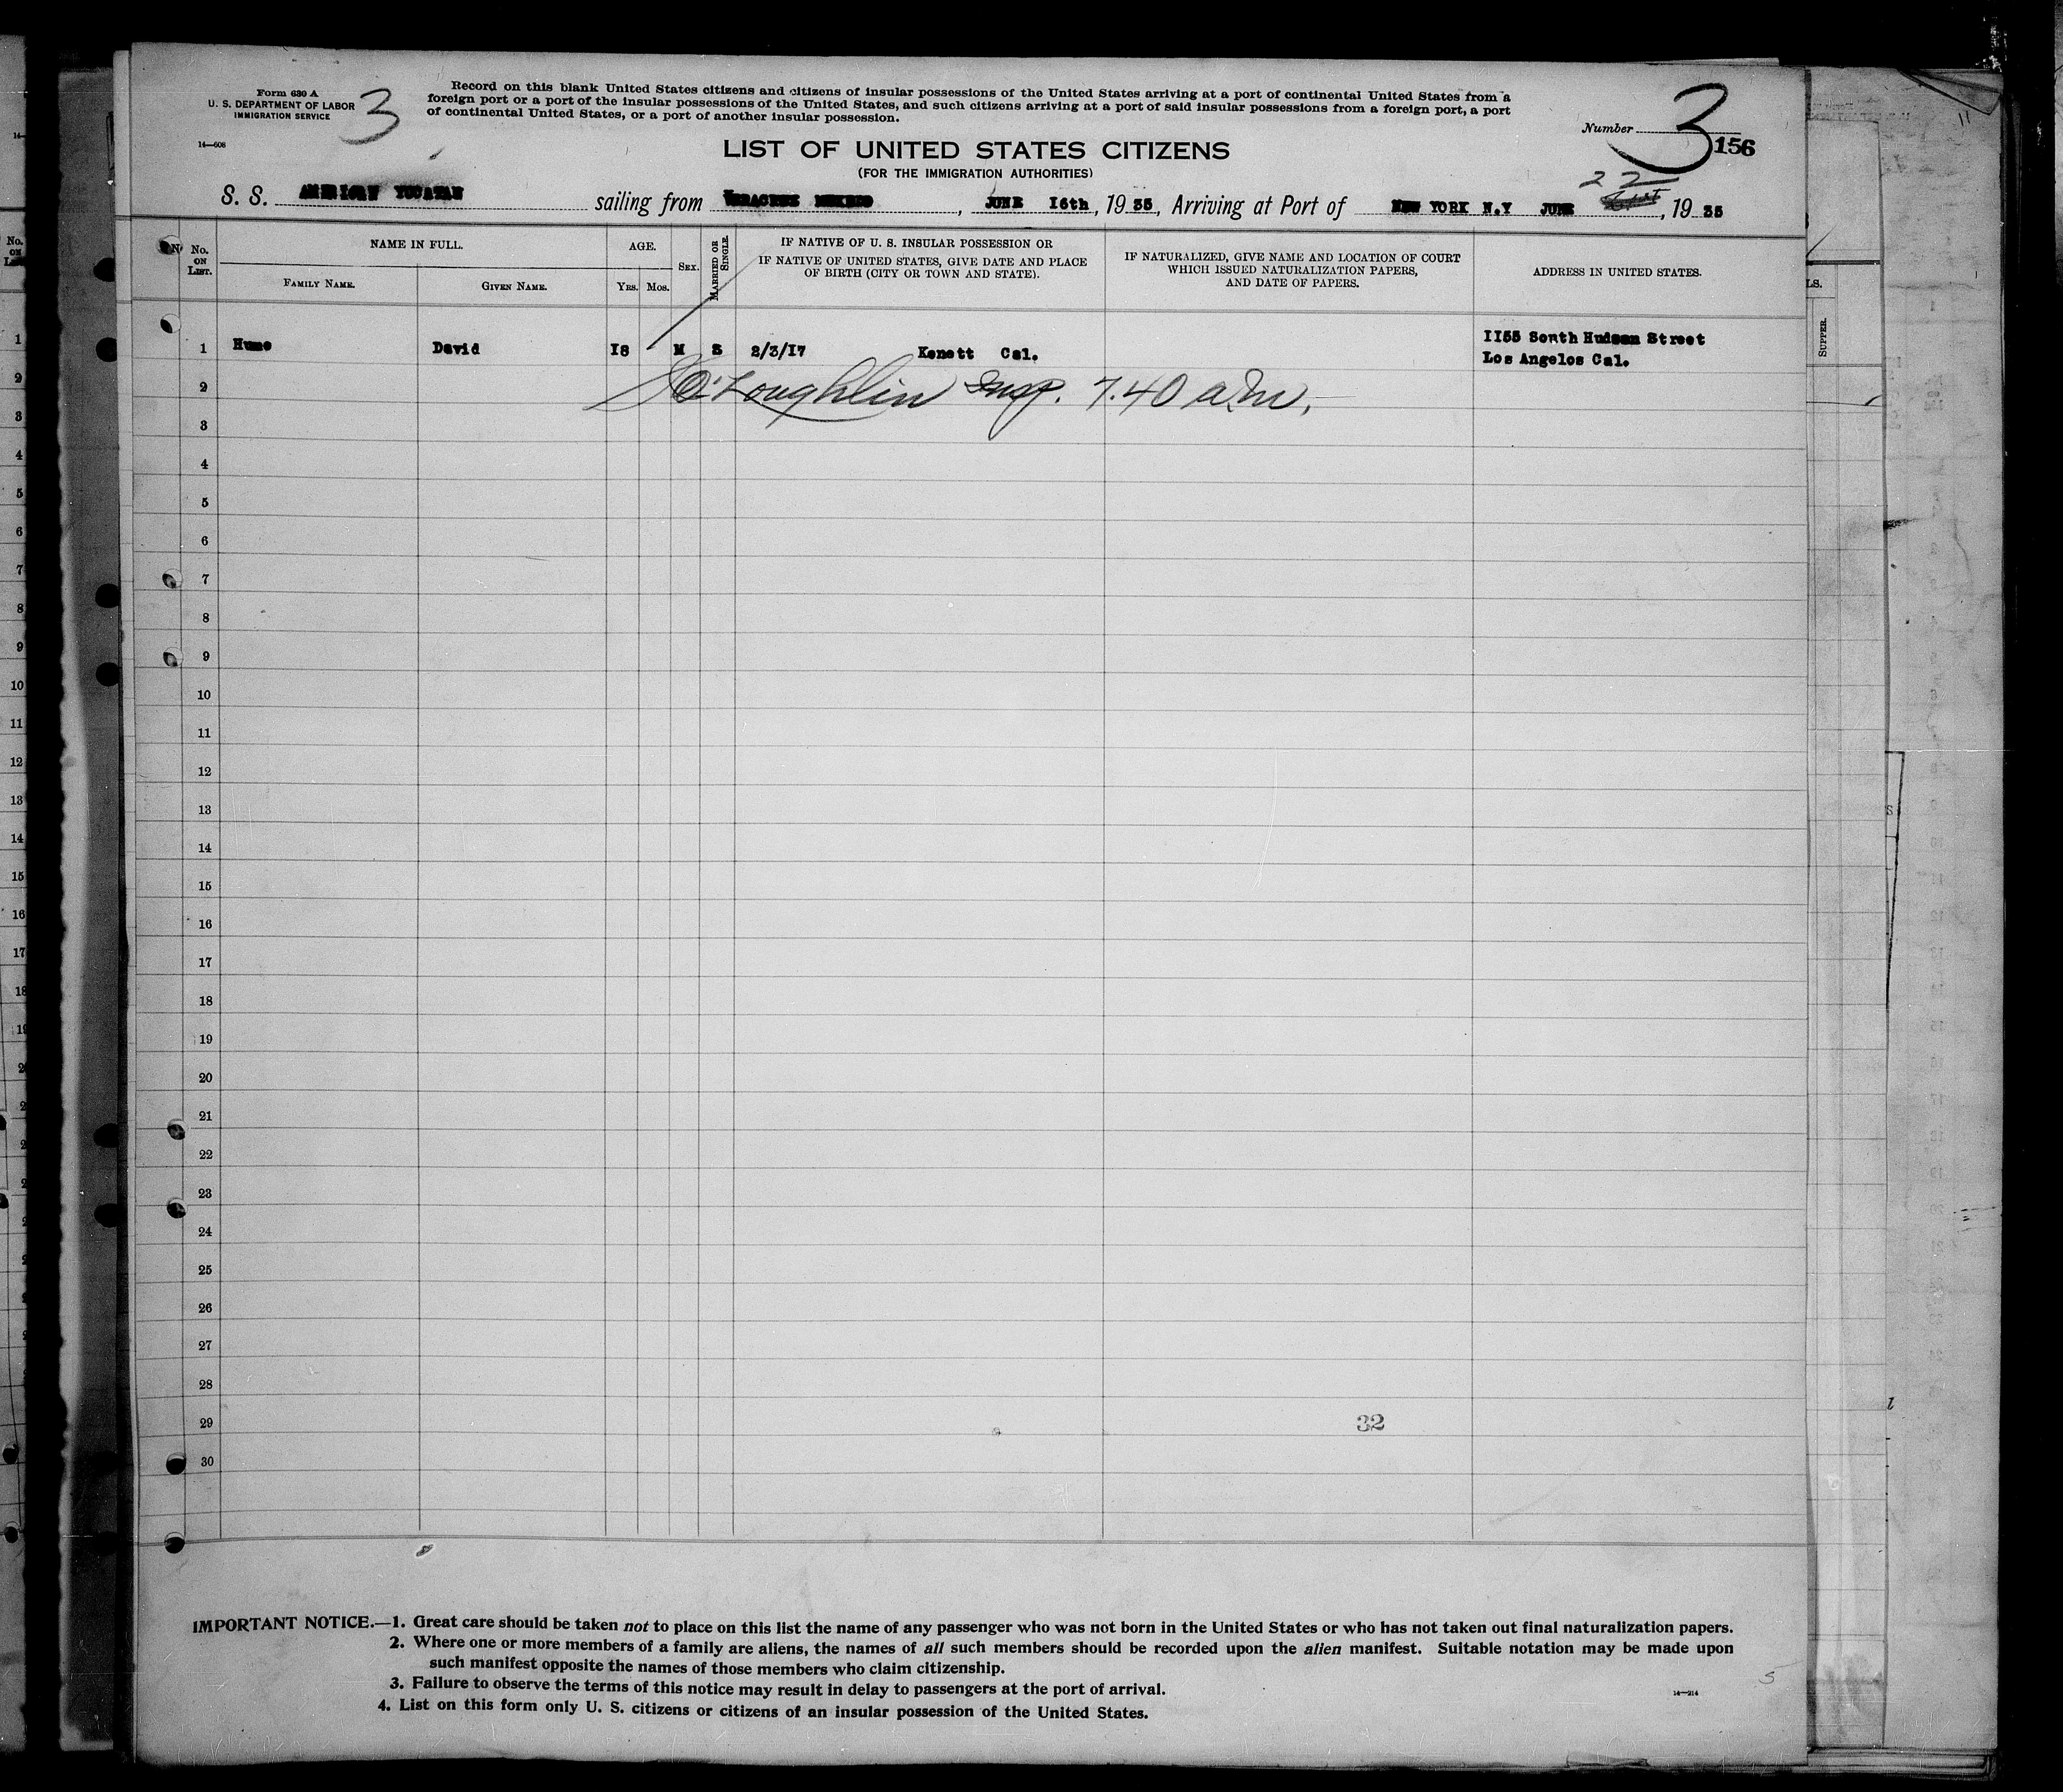 Form 630 A
U. S. DEPARTMENT OF LABOR
IMMIGRATION SERVICE
3
14—608
Record on this blank United States citizens and citizens of insular possessions of the United States arriving at a port of continental United States from a
foreign port or a port of the insular possessions of the United States, and such citizens arriving at a port of said insular possessions from a foreign port, a port
of continental United States, or a port of another insular possession.
Number 3
156
LIST OF UNITED STATES CITIZENS
(FOR THE IMMIGRATION AUTHORITIES)
22
S. S. AMERICAN YUCATAN sailing from VERACRUZ MEXICO, JUNE 16th, 1935, Arriving at Port of NEW YORK N.Y JUNE, 1935
No. ON LIST.
NAME IN FULL.
FAMILY NAME.
GIVEN NAME.
AGE.
YRS. MOS.
SEX.
MARRIED OR SINGLE.
IF NATIVE OF U. S. INSULAR POSSESSION OR
IF NATIVE OF UNITED STATES, GIVE DATE AND PLACE
OF BIRTH (CITY OR TOWN AND STATE).
IF NATURALIZED, GIVE NAME AND LOCATION OF COURT
WHICH ISSUED NATURALIZATION PAPERS,
AND DATE OF PAPERS.
ADDRESS IN UNITED STATES.
1 Hume David I8 M S 2/3/I7 Kenett Cal. II55 South Hudson Street
Los Angelos Cal.
2 O'Loughlin Insp. 7.40 a.m.
3
4
5
6
7
8
9
10
11
12
13
14
15
16
17
18
19
20
21
22
23
24
25
26
27
28
29 32
30
IMPORTANT NOTICE.—1. Great care should be taken not to place on this list the name of any passenger who was not born in the United States or who has not taken out final naturalization papers.
2. Where one or more members of a family are aliens, the names of all such members should be recorded upon the alien manifest. Suitable notation may be made upon
such manifest opposite the names of those members who claim citizenship.
3. Failure to observe the terms of this notice may result in delay to passengers at the port of arrival.
4. List on this form only U. S. citizens or citizens of an insular possession of the United States.
14—214
5
SUPPER.